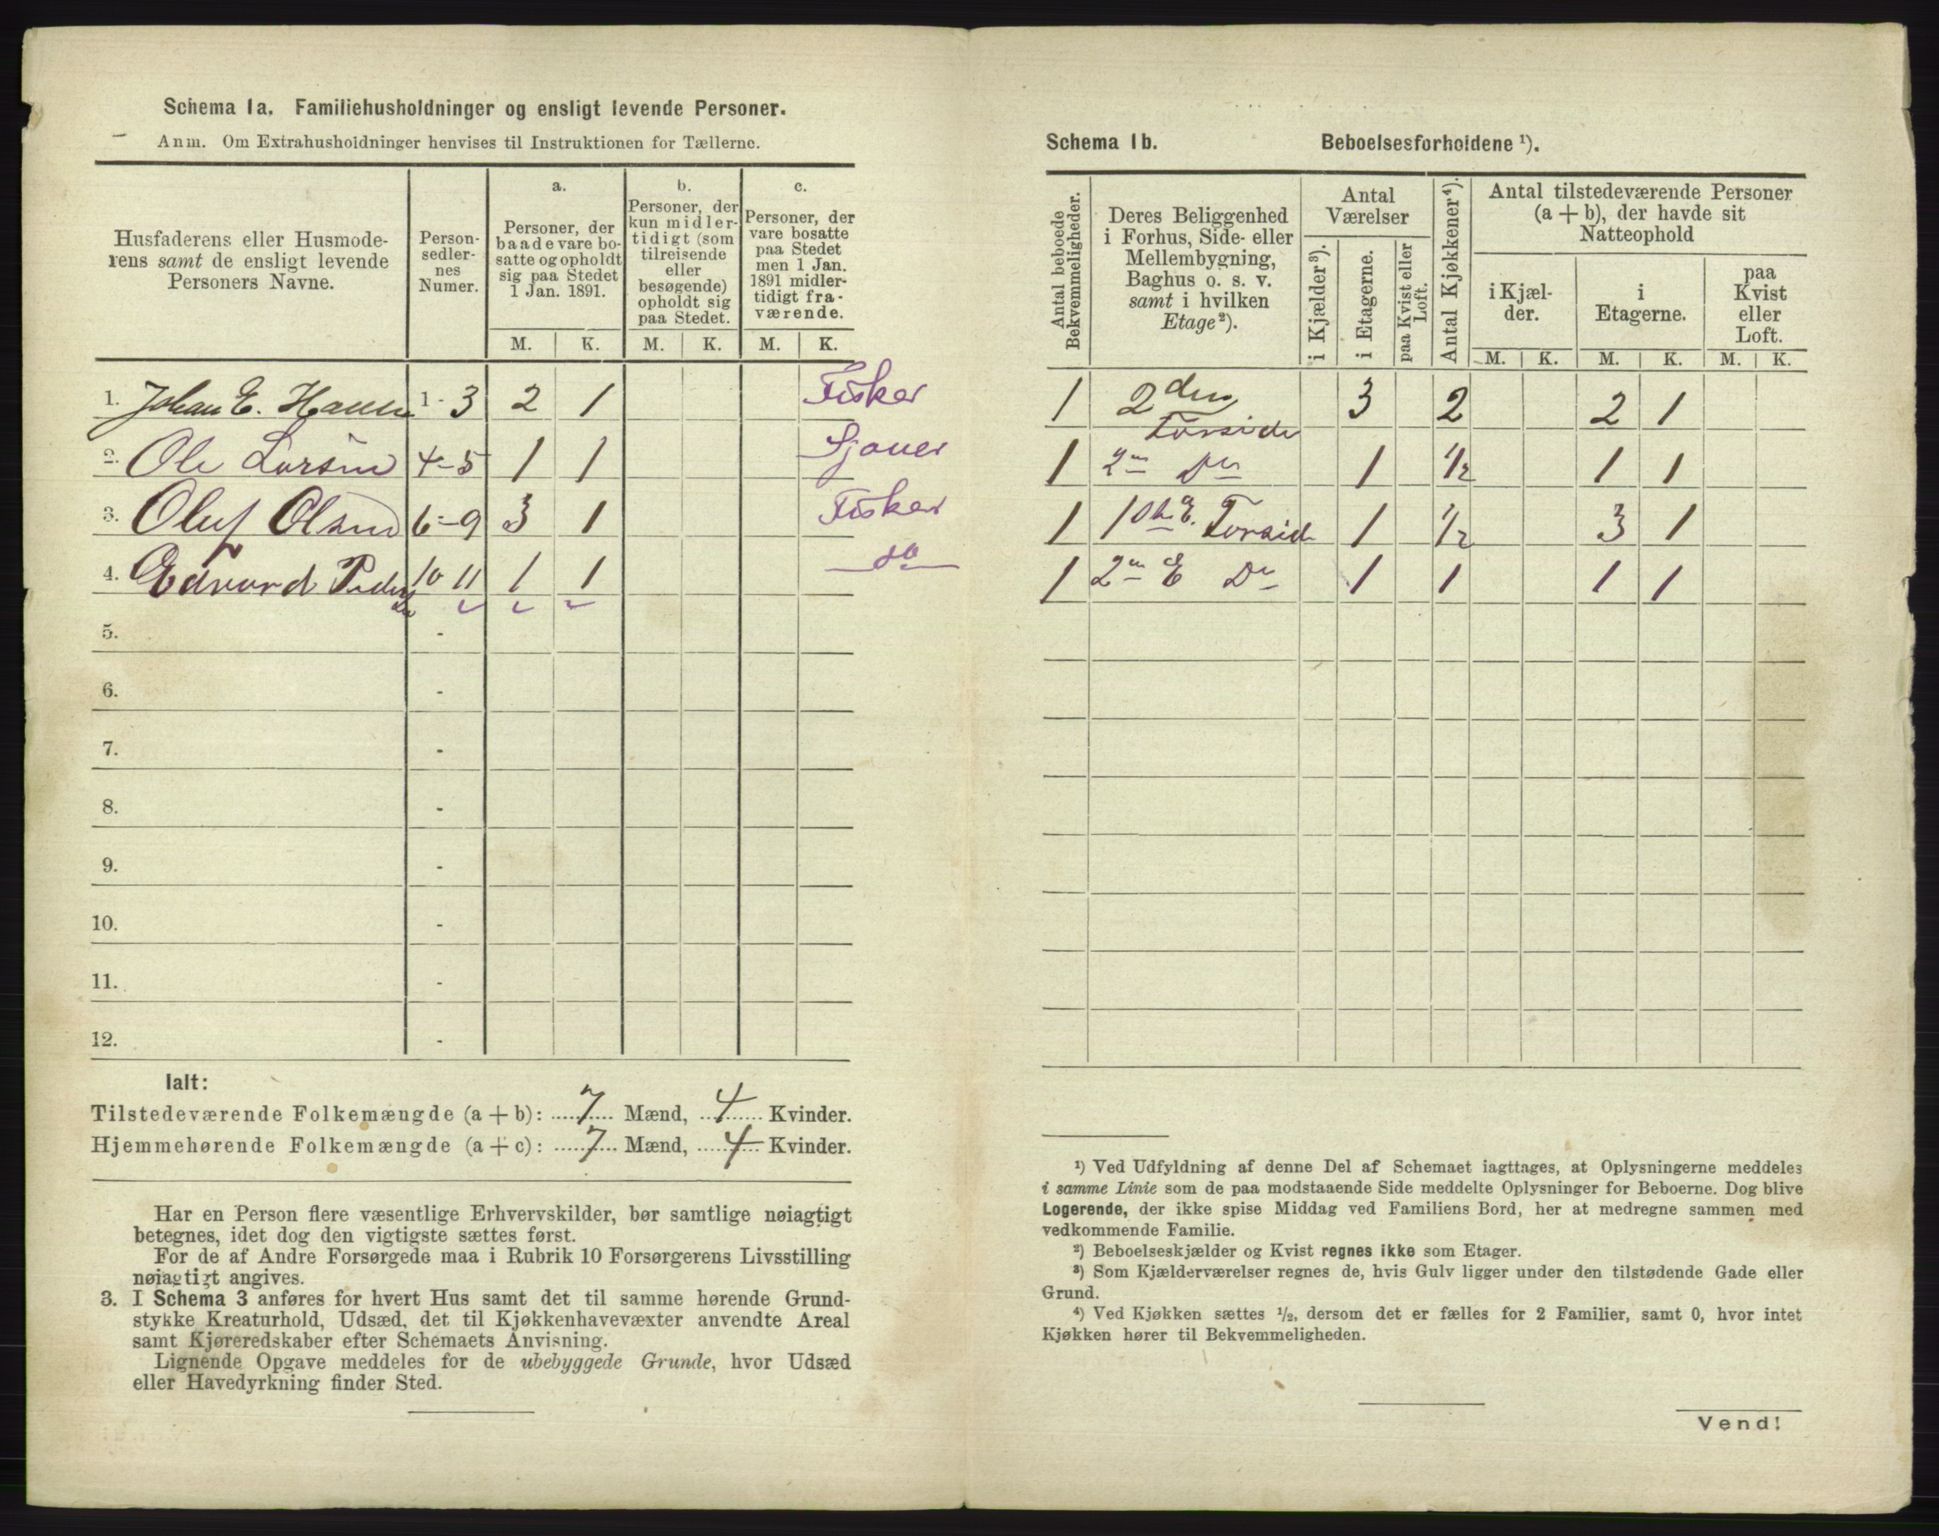 Schema 1a. Familiehusholdninger og ensligt levende Personer.
Anm. Om Extrahusholdninger henvises til Instruktionen for Tællerne.
Husfaderens eller Husmoderens samt de ensligt levende Personers Navne.
Personsedlernes Numer.
a.
Personer, der baade vare bosatte og opholdt sig paa Stedet 1 Jan. 1891.
b.
Personer, der kun midlertidigt (som tilreisende eller besøgende) opholdt sig paa Stedet.
c.
Personer, der vare bosatte paa Stedet men 1 Jan. 1891 midlertidigt fraværende.
M. K. M. K. M. K.
1. Johan E. Hansen 1 - 3 2 1 Fisker
2. Ole Larsen 4 - 5 1 1 Sjauer
3. Oluf Olsen 6 - 9 3 1 Fisker
4. Edvard Peder 10 11 1 1 do
5. -
6. -
7. -
8. -
9. -
10. -
11. -
12. -
Ialt:
Tilstedeværende Folkemængde (a + b): 7 Mænd, 4 Kvinder.
Hjemmehørende Folkemængde (a + c): 7 Mænd, 4 Kvinder.
Har en Person flere væsentlige Erhvervskilder, bør samtlige nøiagtigt
betegnes, idet dog den vigtigste sættes først.
For de af Andre Forsørgede maa i Rubrik 10 Forsørgerens Livsstilling
nøiagtigt angives.
3. I Schema 3 anføres for hvert Hus samt det til samme hørende Grund-
stykke Kreaturhold, Udsæd, det til Kjøkkenhavevæxter anvendte Areal
samt Kjøreredskaber efter Schemaets Anvisning.
Lignende Opgave meddeles for de ubebyggede Grunde, hvor Udsæd
eller Havedyrkning finder Sted.
Schema 1b. Beboelsesforholdene ¹).
Antal beboede Bekvemmeligheder.
Deres Beliggenhed i Forhus, Side- eller Mellembygning, Baghus o. s. v. samt i hvilken Etage ²).
Antal Værelser
i Kjælder ³).
i Etagerne.
paa Kvist eller Loft.
Antal Kjøkkener ⁴).
Antal tilstedeværende Personer (a + b), der havde sit Natteophold
i Kjælder.
i Etagerne.
paa Kvist eller Loft.
M. K. M. K. M. K.
1 2den Forside 3 2 2 1
1 2n Do 1 ½ 1 1
1 1ste E. Forside 1 ½ 3 1
1 2n E Do 1 1 1 1
¹) Ved Udfyldning af denne Del af Schemaet iagttages, at Oplysningerne meddeles
i samme Linie som de paa modstaaende Side meddelte Oplysninger for Beboerne. Dog blive
Logerende, der ikke spise Middag ved Familiens Bord, her at medregne sammen med
vedkommende Familie.
²) Beboelseskjælder og Kvist regnes ikke som Etager.
³) Som Kjælderværelser regnes de, hvis Gulv ligger under den tilstødende Gade eller
Grund.
⁴) Ved Kjøkken sættes ½, dersom det er fælles for 2 Familier, samt 0, hvor intet
Kjøkken hører til Bekvemmeligheden.
Vend!